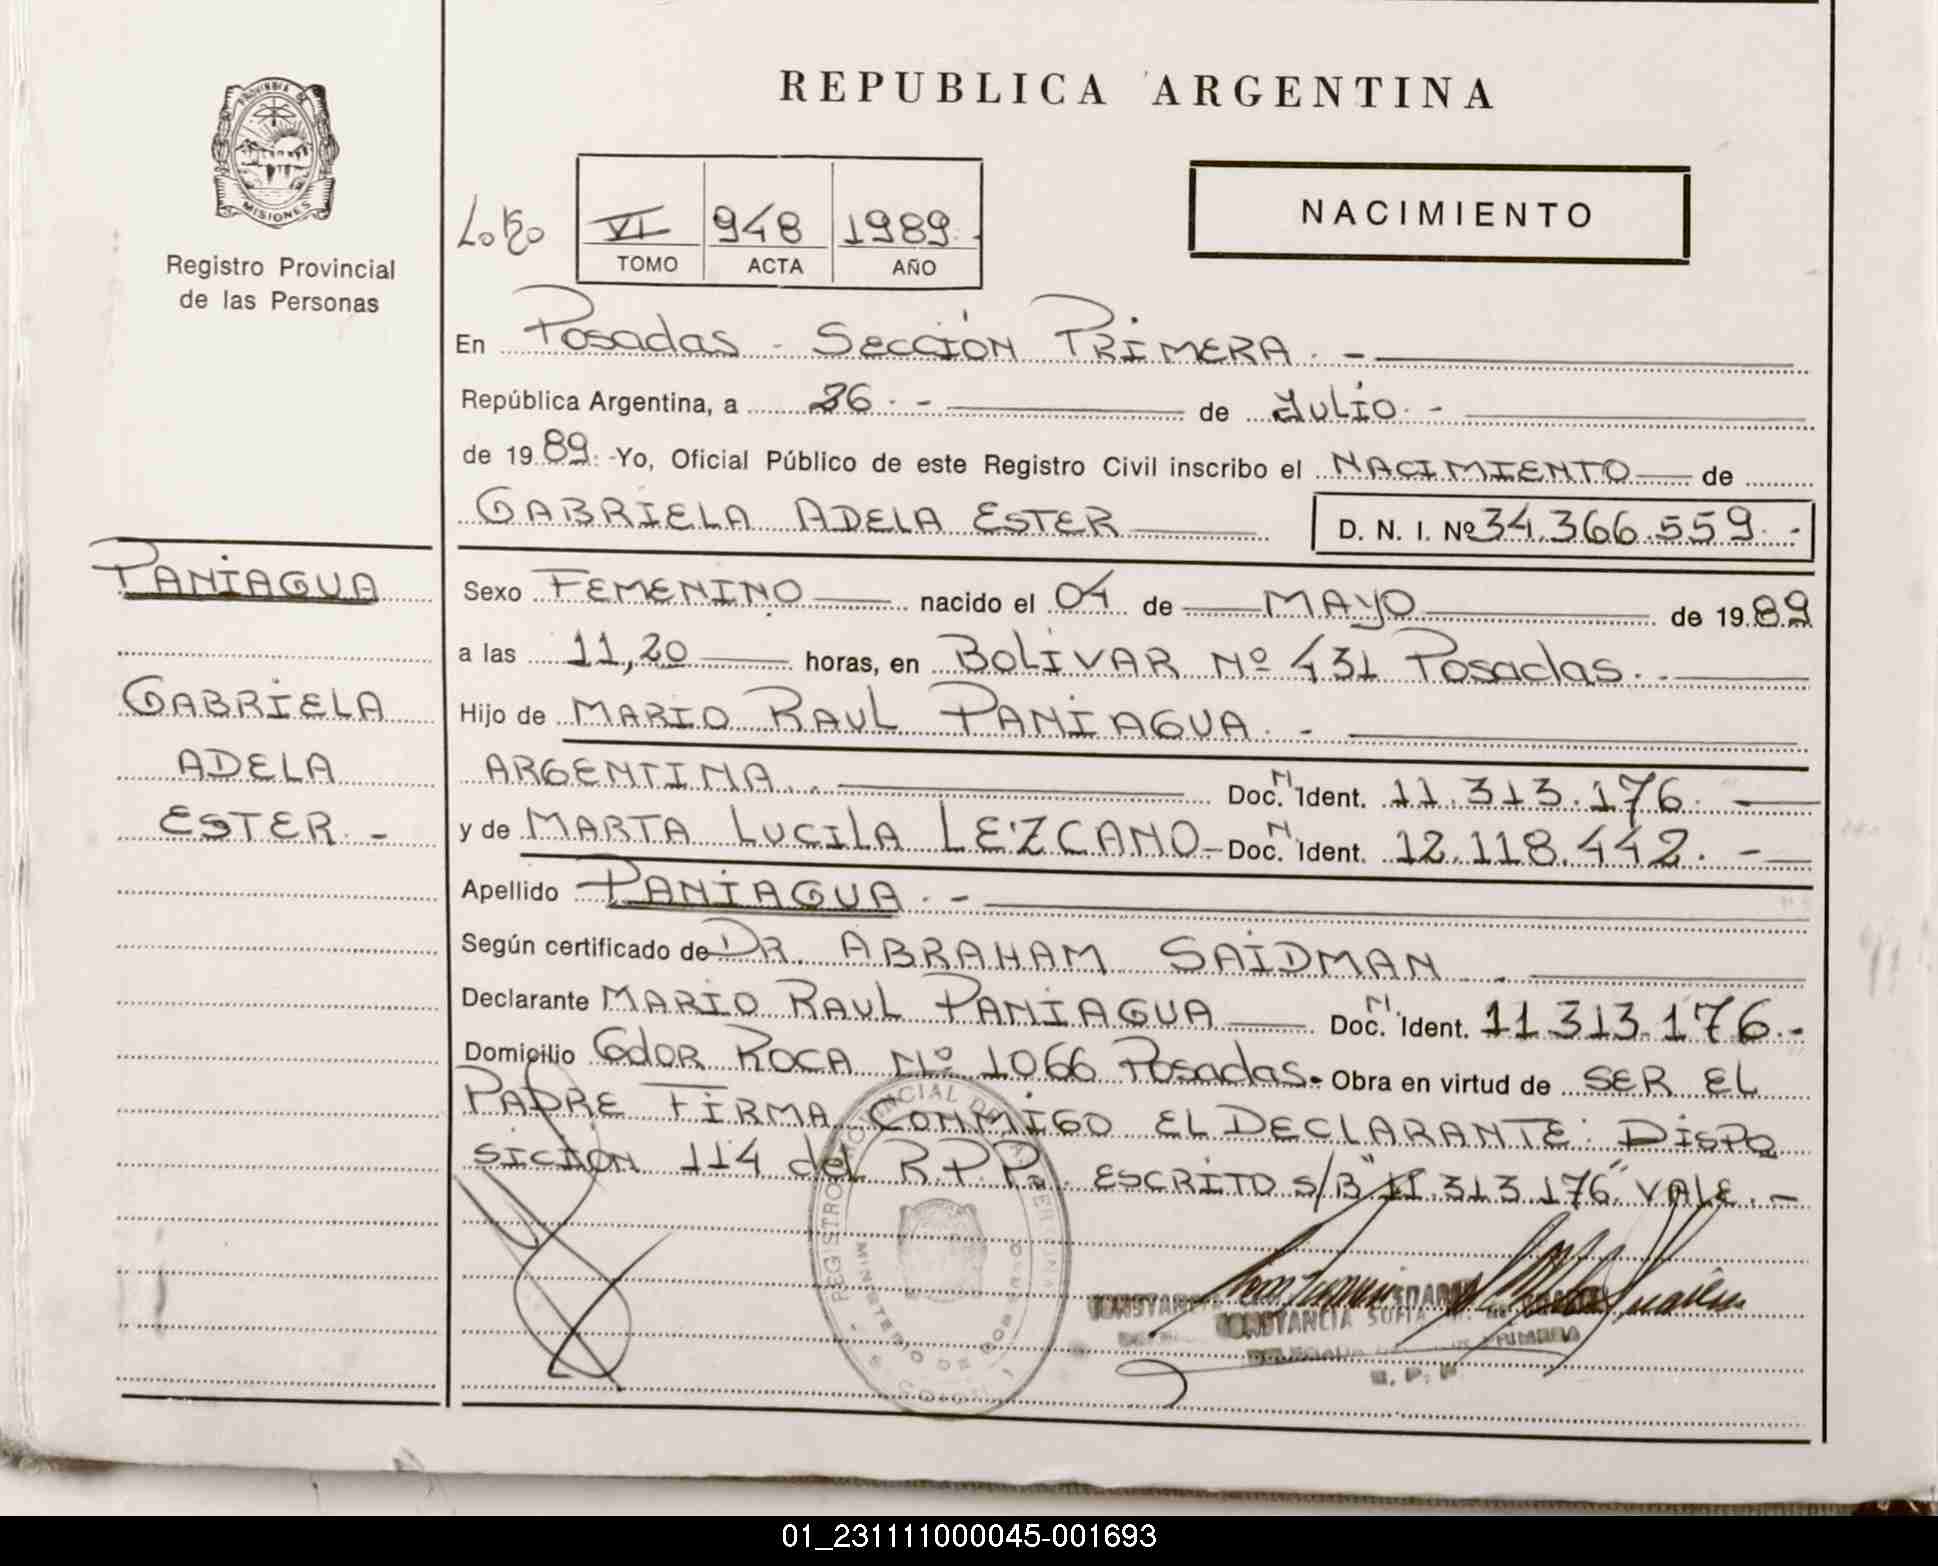 REPUBLICA ARGENTINA
PROVINCIA DE
MISIONES
Registro Provincial
de las Personas
VI 948 1989.-
TOMO ACTA AÑO
NACIMIENTO
En Posadas - SECCIÓN PRIMERA.-
República Argentina, a 26.- de JULIO.-
de 1989.-Yo, Oficial Público de este Registro Civil inscribo el NACIMIENTO de
GABRIELA ADELA ESTER D. N. I. Nº 34.366.559.-
PANIAGUA
GABRIELA
ADELA
ESTER.-
Sexo FEMENINO nacido el 04 de MAYO de 1989
a las 11,20 horas, en BOLIVAR Nº 431 Posadas.-
Hijo de MARIO RAUL PANIAGUA.-
ARGENTINA.- Doc. N Ident. 11.313.176.-
y de MARTA LUCILA LEZCANO- Doc. N Ident. 12.118.442.-
Apellido PANIAGUA.-
Según certificado de DR. ABRAHAM SAIDMAN.
Declarante MARIO RAUL PANIAGUA Doc. N Ident. 11.313.176.-
Domicilio GdOR ROCA Nº 1066 Posadas.- Obra en virtud de SER EL
PADRE FIRMA CONMIGO EL DECLARANTE: DISPO
SICION 114 del R.P.P. ESCRITO S/B "11.313.176" VALE.-
CONSTANCIA SOFIA
01_231111000045-001693